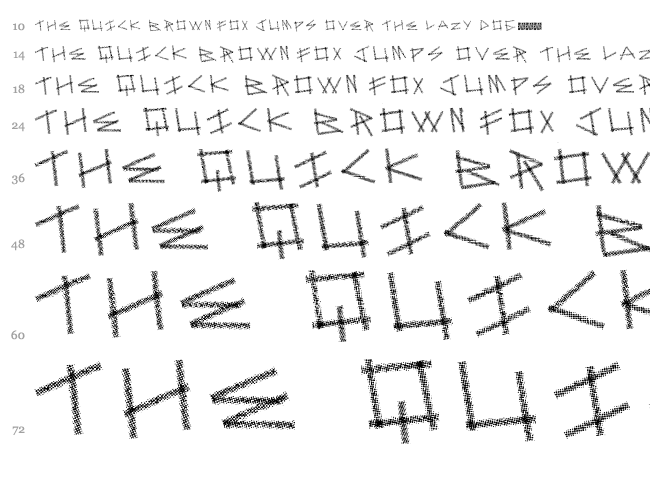 10 THE QUICK BROWN FOX JUMPS OVER THE LAZY DOG
14 THE QUICK BROWN FOX JUMPS OVER THE LAZ
18 THE QUICK BROWN FOX JUMPS OVER
24 THE QUICK BROWN FOX JUM
36 THE QUICK BROW
48 THE QUICK B
60 THE QUICK
72 THE QUI